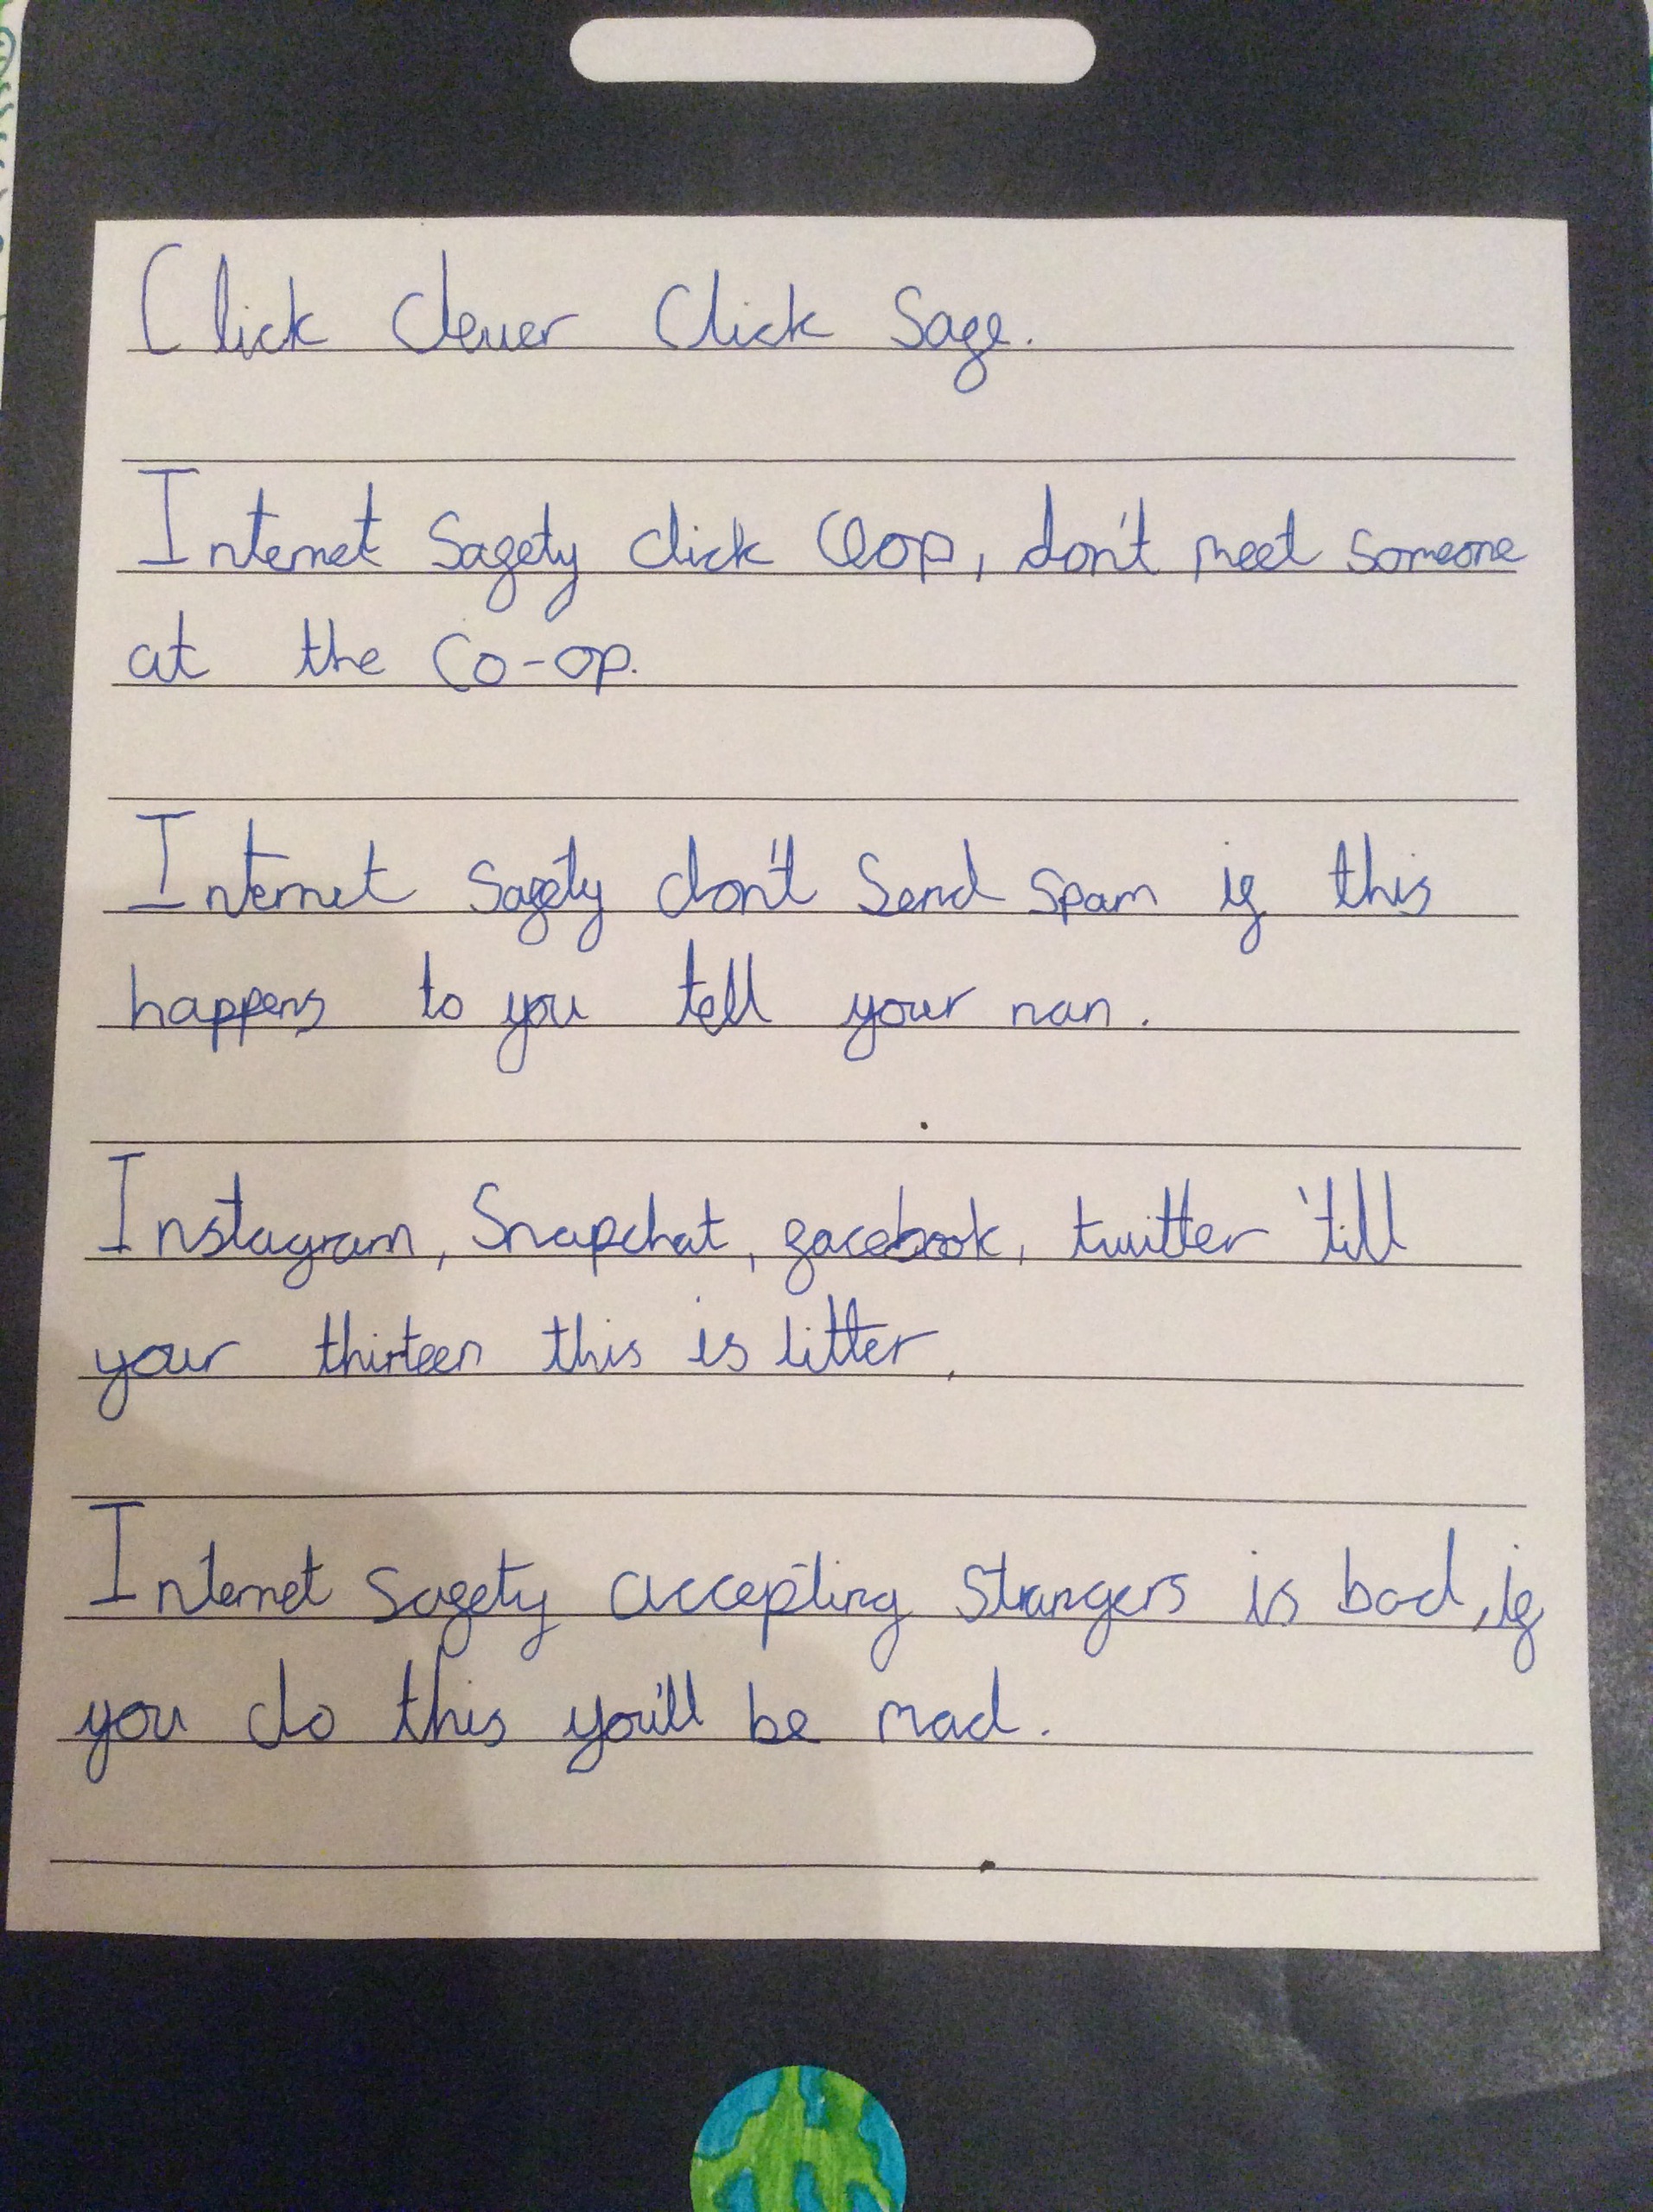 Click Clever Click Safe.
Internet Safety click Ceop, don't meet someone
at the Co-op.
Internet Safety don't Send spam if this
happens to you tell your nan.
Instagram, Snapchat, facebook, twitter 'till
your thirteen this is litter.
Internet Safety accepting strangers is bad, if
you do this you'll be mad.